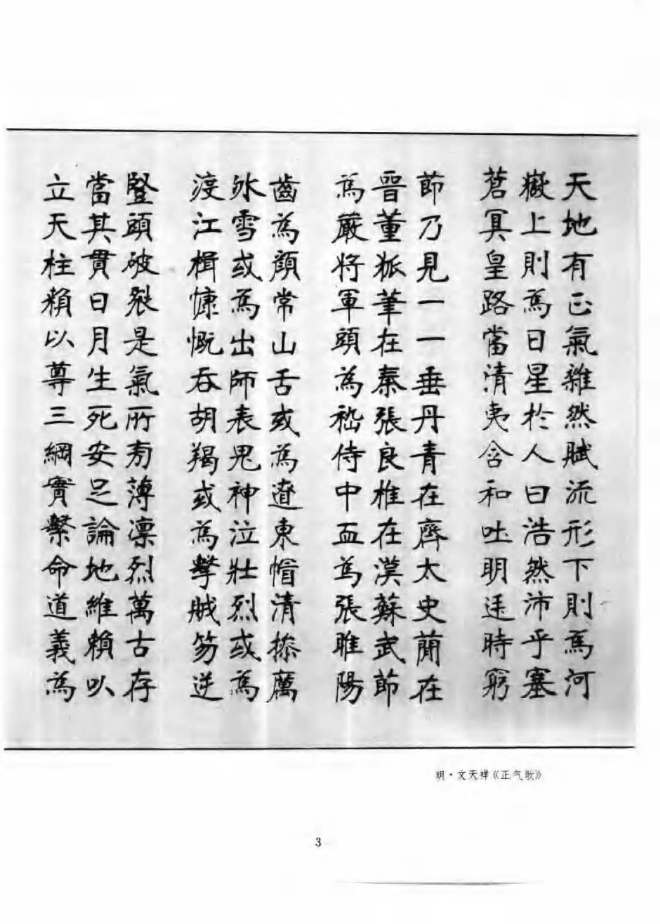 天地有正氣雜然賦流形下則為河
嶽上則為日星於人曰浩然沛乎塞
蒼冥皇路當清夷含和吐明廷時窮
節乃見一一垂丹青在齊太史簡在
晉董狐筆在秦張良椎在漢蘇武節
為嚴將軍頭為嵇侍中血為張睢陽
齒為顏常山舌或為遼東帽清操厲
冰雪或為出師表鬼神泣壯烈或為
渡江楫慷慨吞胡羯或為擊賊笏逆
豎頭破裂是氣所旁薄凜烈萬古存
當其貫日月生死安足論地維賴以
立天柱賴以尊三綱實繫命道義為
明·文天祥《正气歌》
3